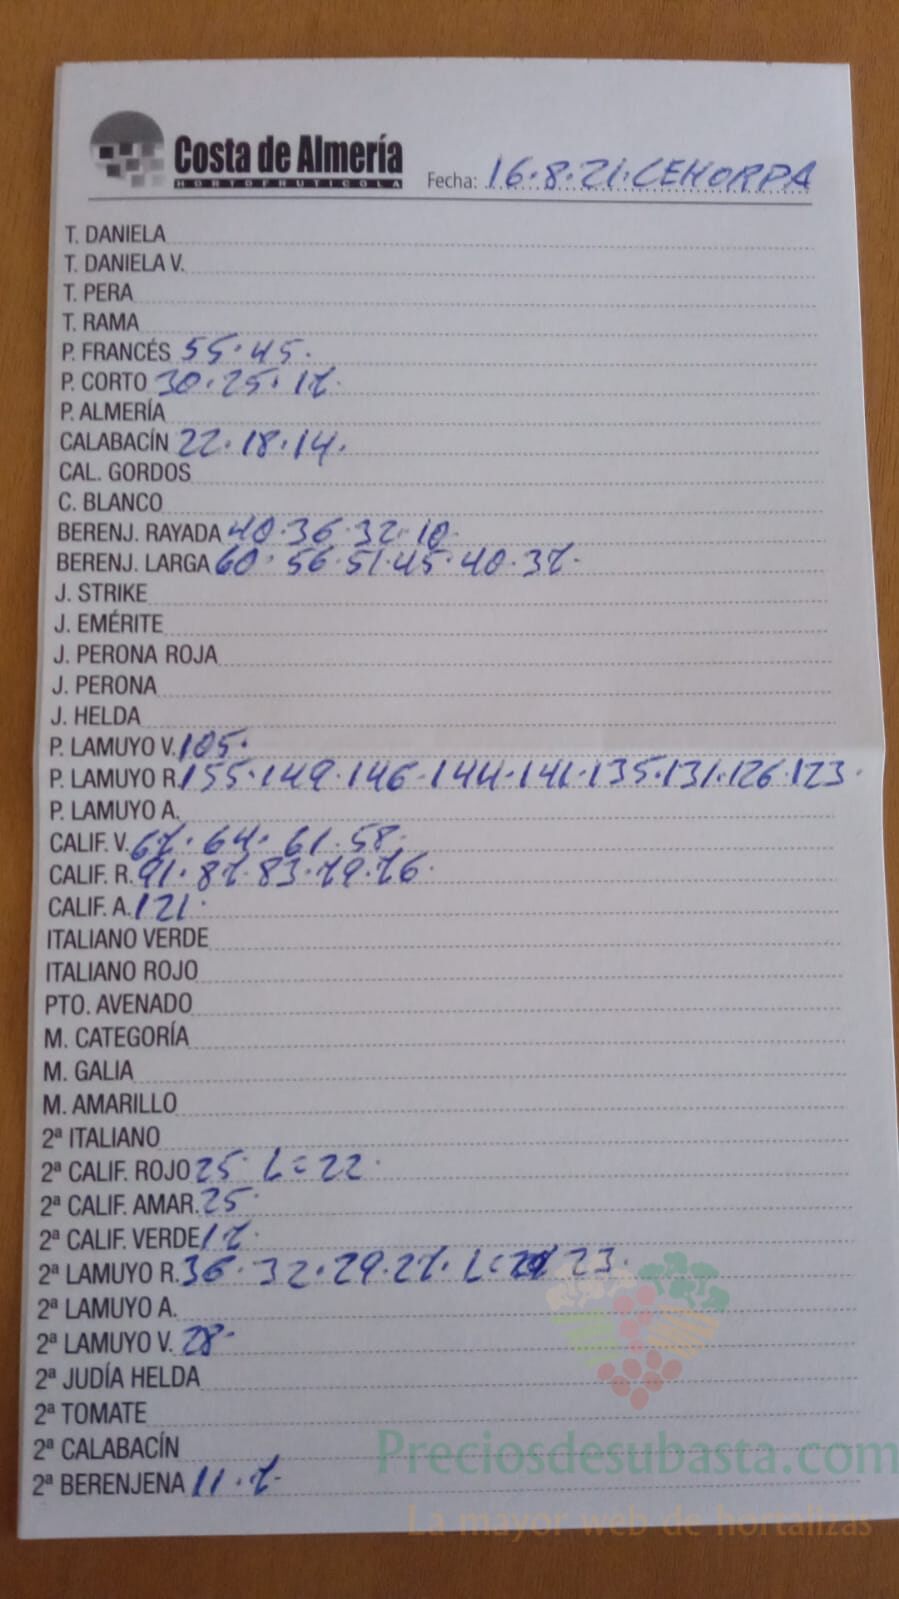 Costa de Almería
HORTOFRUTICOLA
Fecha: 16.8.21. CEHORPA
T. DANIELA
T. DANIELA V.
T. PERA
T. RAMA
P. FRANCÉS 55.45.
P. CORTO 30.25.17.
P. ALMERÍA
CALABACÍN 22.18.14.
CAL. GORDOS
C. BLANCO
BERENJ. RAYADA 40.36.32.10.
BERENJ. LARGA 60.56.51.45.40.37.
J. STRIKE
J. EMÉRITE
J. PERONA ROJA
J. PERONA
J. HELDA
P. LAMUYO V. 105.
P. LAMUYO R. 155.149.146.144.141.135.131.126.123.
P. LAMUYO A.
CALIF. V. 67.64.61.58.
CALIF. R. 91.87.83.79.76.
CALIF. A. 121.
ITALIANO VERDE
ITALIANO ROJO
PTO. AVENADO
M. CATEGORÍA
M. GALIA
M. AMARILLO
2ª ITALIANO
2ª CALIF. ROJO 25. L=22.
2ª CALIF. AMAR. 25.
2ª CALIF. VERDE 17.
2ª LAMUYO R. 36.32.29.27. L= 23.
2ª LAMUYO A.
2ª LAMUYO V. 28.
2ª JUDÍA HELDA
2ª TOMATE
2ª CALABACÍN
2ª BERENJENA 11.7.
Preciosdesubasta.com
La mayor web de hortalizas